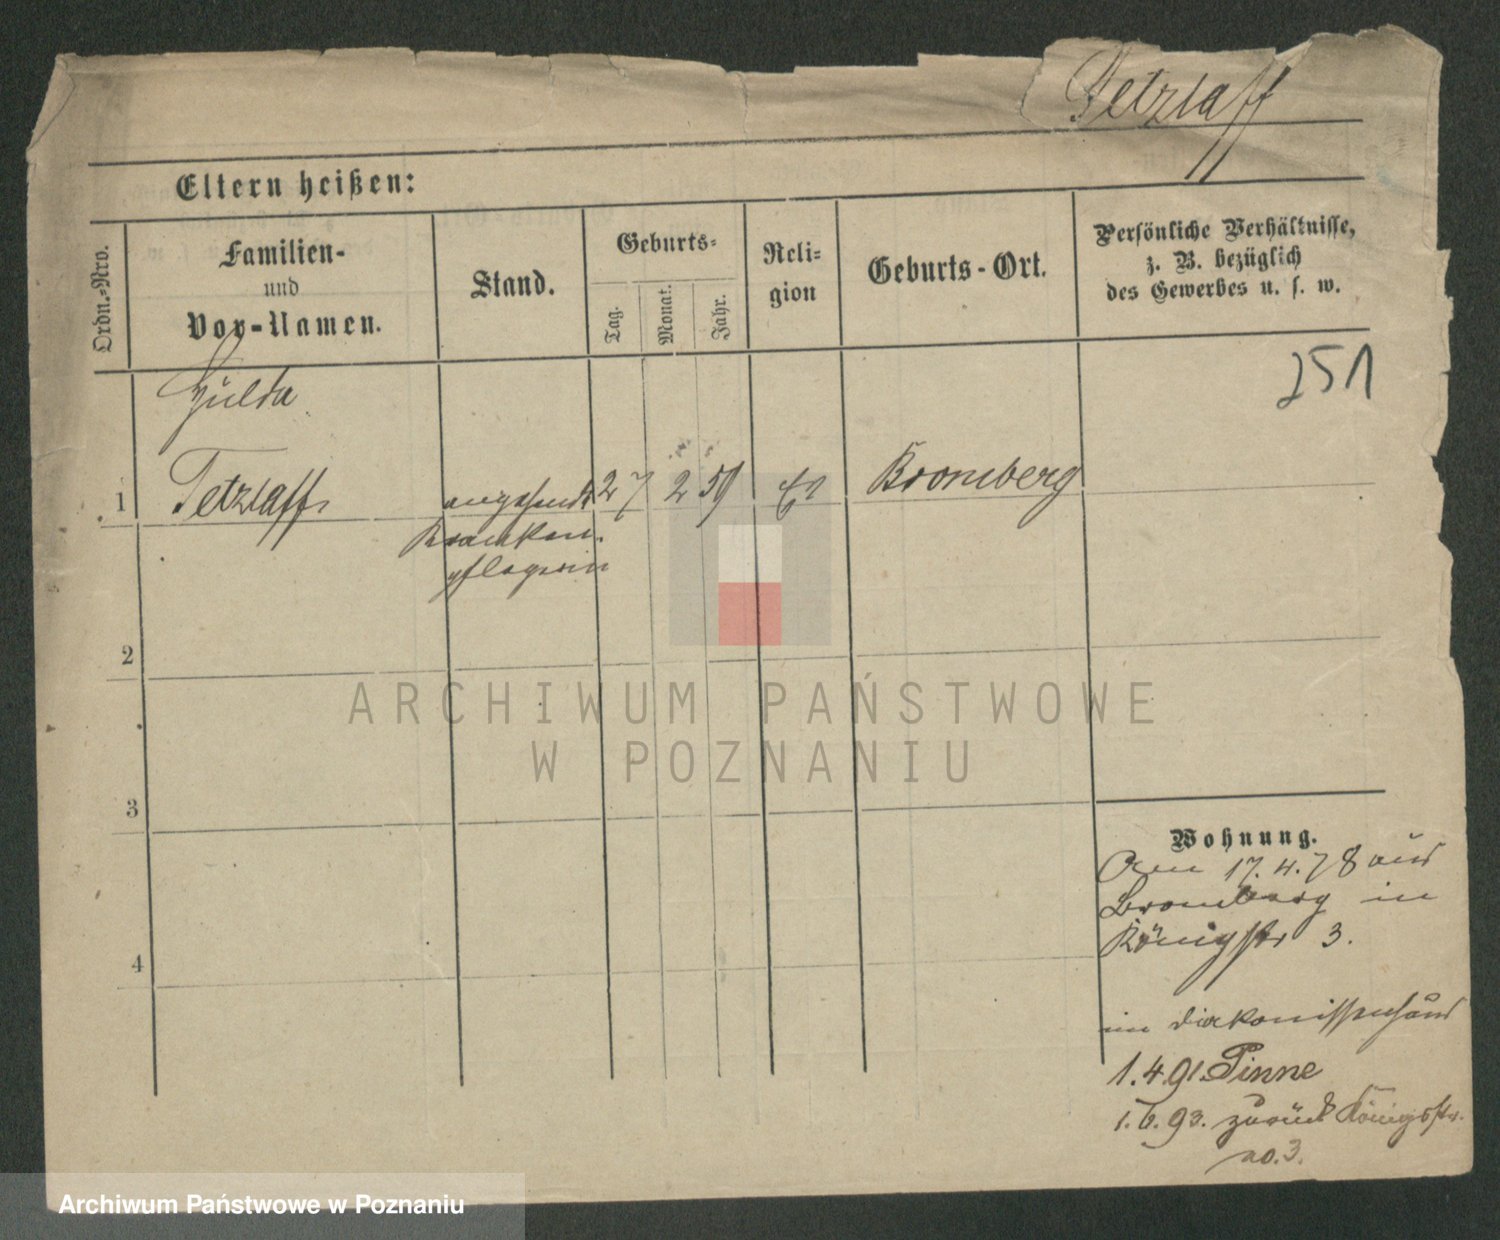 Tetzlaff
Eltern heißen:
Ordn.-Nro.
Familien-
und
Vor-Namen.
Stand.
Geburts-
Tag.
Monat.
Jahr.
Reli-
gion
Geburts-Ort.
Persönliche Verhältnisse,
z. B. bezüglich
des Gewerbes u. s. w.
251
Hulda
1 Tetzlaff angehende 27 2 59 Ev Bromberg
Kranken-
pflegerin
2
3
4
Wohnung.
Am 17.4.78 aus
Bromberg in
Königstr 3.
im Diakonissenhaus
1.4.91. Pinne
1.6.93. zurück Königsstr.
no.3.
ARCHIWUM PAŃSTWOWE
W POZNANIU
Archiwum Państwowe w Poznaniu